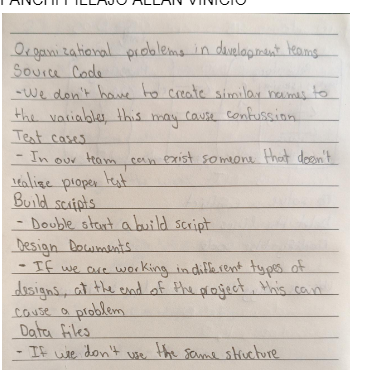 PANCHI PILLAJO ALLAN VINICIO
Organizational problems in development teams
Source Code
- We don't have to create similar names to
the variables, this may cause confussion
Test cases
- In our team, can exist someone that doesn't
realize proper test
Build scripts
- Double start a build script
Design Documents
- If we are working in different types of
designs, at the end of the project, this can
cause a problem
Data files
- If we don't use the same structure